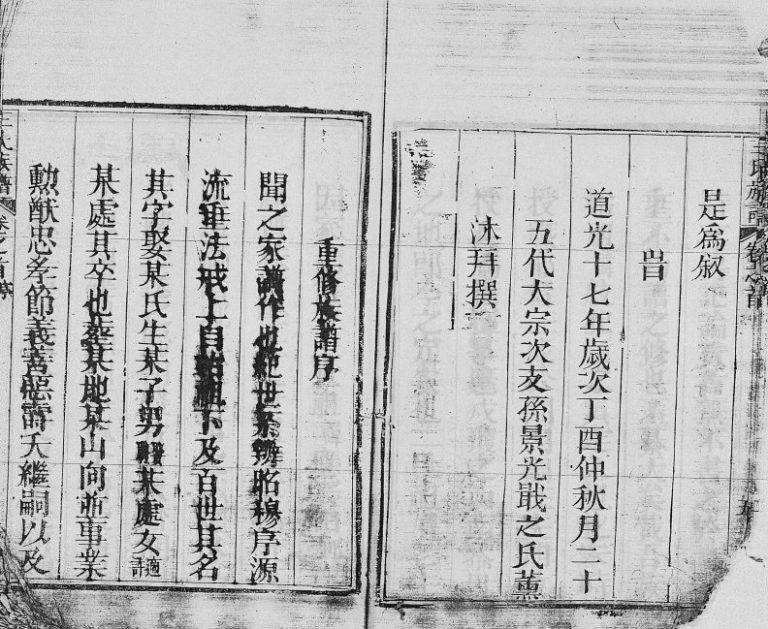 是爲叙
旹
道光十七年歲次丁酉仲秋月二十
五代大宗次支孫景光戢之氏薰
沐拜撰
重修族譜序
聞之家譜作也紀世系辨昭穆序源
流垂法戒上自始祖下及百世其名
其字娶某氏生某子男某處女適許
某處其卒也塟某地某山向並事業
勳猷忠孝節義善惡壽夭繼嗣以及
王氏族譜